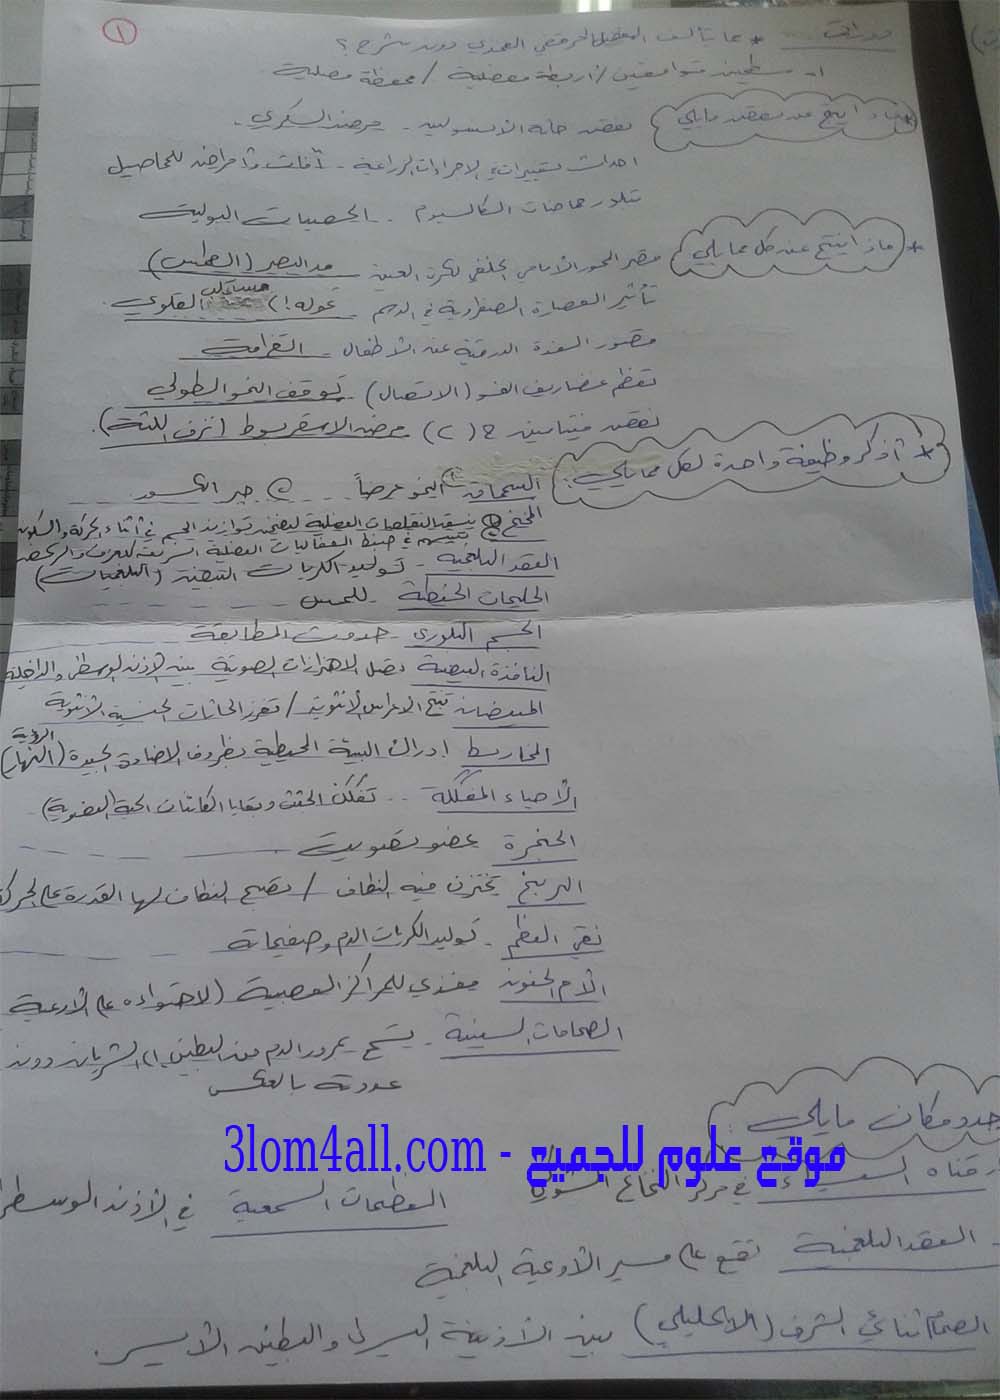 ١
دورات * مما يتألف المفصل الحرقفي الفخذي دون شرح ؟
سطحين متوافقين / أربطة مفصلية / محفظة مصلية
ماذا ينتج عن نقص مايلي
نقص حاثة الأنسولين - مرض السكري -
احداث تغييرات في الاجراءات الزراعية - آفات وأمراض للمحاصيل
تبلور حماضات الكالسيوم - الحصيات البولية
* ماذا ينتج عن كل مما يلي
قصر المحور الأمامي الخلفي لكرة العين مد البصر (الطمس)
تأثير العصارة الصفراوية في الدسم تحوله إلى مستحلب القلوي
قصور الغدة الدرقية عند الأطفال - القزامة
تعظم غضاريف النمو (الاتصال) - توقف النمو الطولي
نقص فيتامين ج (C) مرض الاسقربوط (نزف اللثة).
* أذكر وظيفة واحدة لكل مما يلي:
السمحاق النمو عرضاً جبر الكسور
المخيخ ينسق التقلصات العضلية ليضمن توازن الجسم في أثناء الحركة والسكون
يسهم في ضبط الفعاليات العضلية السريعة كالعزف والركض
العقد البلغمية - توليد الكريات البيضاء (البلغميات)
الحليمات الخيطية - للمس
الجسم البلوري - حدوث المطابقة
النافذة البيضية نقل الاهتزازات الصوتية بين الأذن الوسطى والداخلية
المبيضان تنتج الأعراس الأنثوية / تفرز الحاثات الجنسية الأنثوية
المخاريط ادراك البيئة المحيطية بظروف الإضاءة الجيدة (الرؤية النهارية)
الأحياء المفككة - تفكك الجثث وبقايا الكائنات الحية (العضوية) -
الحنجرة عضو تصويت
البربخ يختزن فيه النطاف / تصبح النطاف لها القدرة على الحركة
نقي العظم - توليد الكريات الدم وصفيحاته
الأم الحنون مغذي للمراكز العصبية (لاحتواءه على الأوعية
الصمامات السينية - يسمح بمرور الدم من البطين إلى الشريان دون
عودته بالعكس
حدد مكان مايلي:
قناة السيساء في مركز النخاع الشوكي العظيمات السمعية في الأذن الوسطى
موقع علوم للجميع - 3lom4all.com
العقد البلغمية تقع على مسير الأوعية البلغمية
الصمام ثنائي الشرف (الاكليلي) بين الأذينة اليسرى والبطين الأيسر.